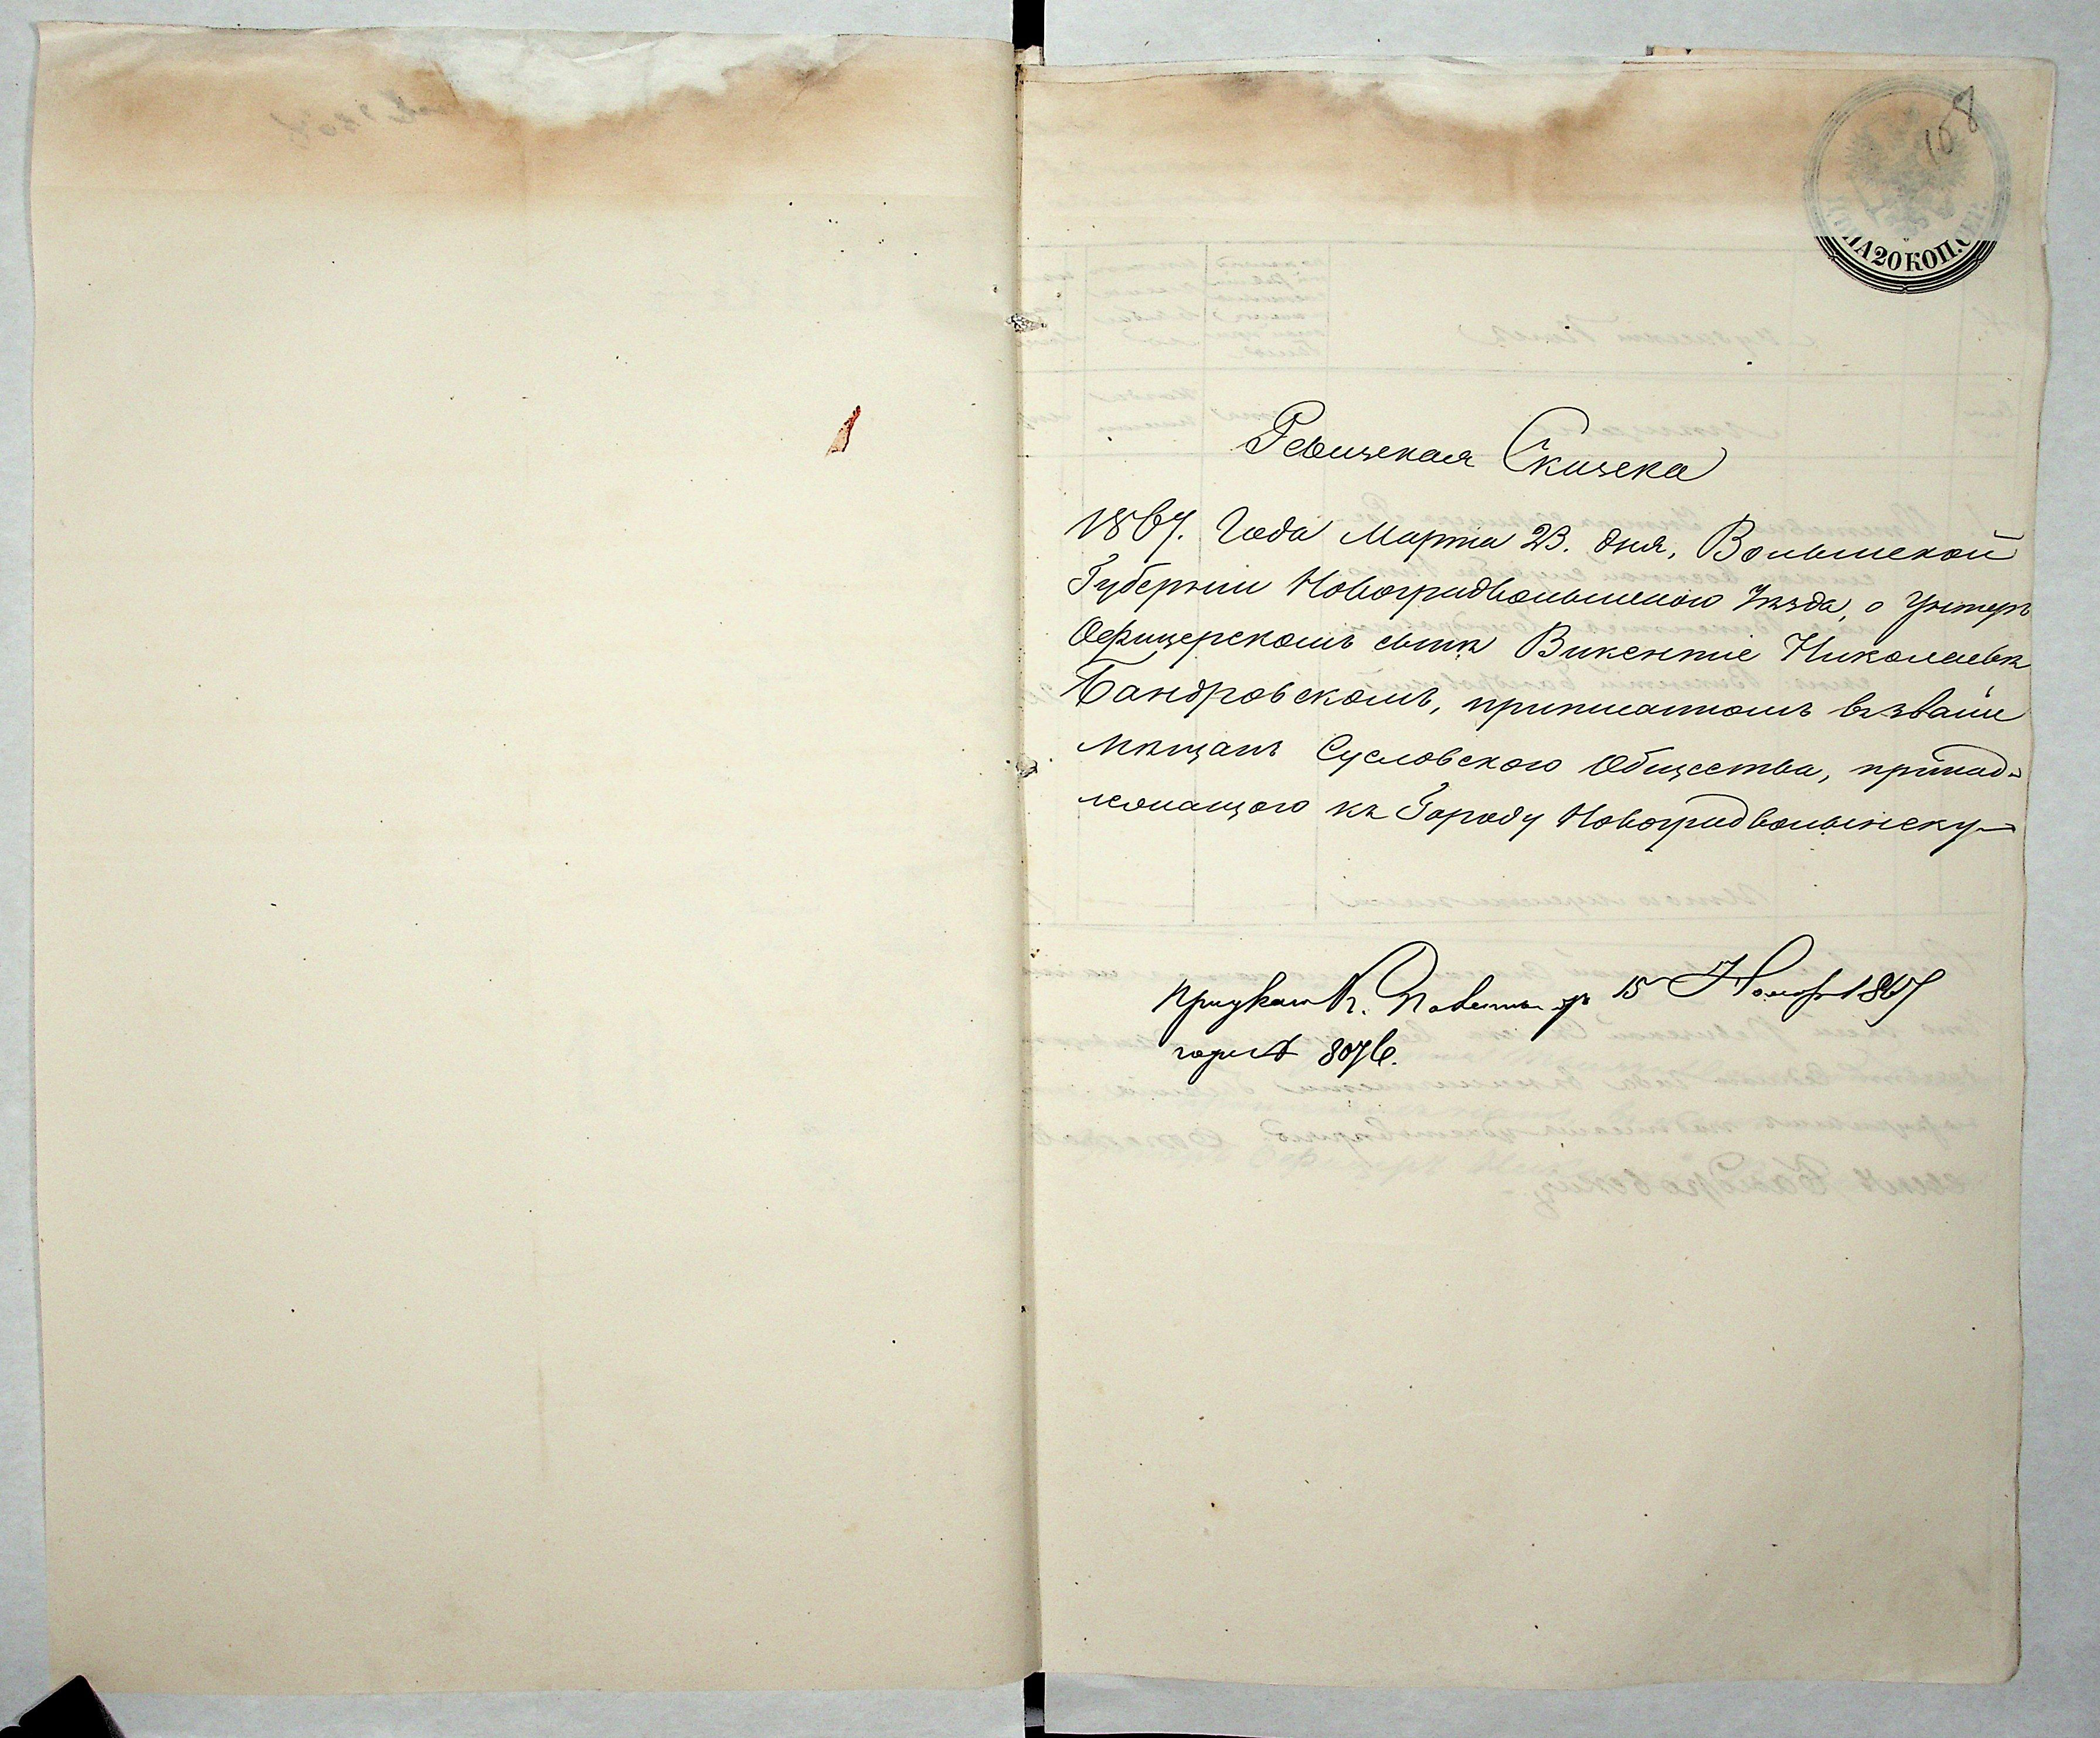 108
ЦѢНА 20 КОП. СЕР.
Ревизская Сказска
1867. Года Марта 23. дня, Волынской
Губерніи Новоградволынского Уѣзда, о Унтеръ
Офицерскомъ сынѣ Викентіе Николаевѣ
Бандровскомъ, приписанномъ въ званіи
мѣщанъ Сусловского Общества, принад-
лежащого къ Городу Новоградволынску
При указѣ К. Палаты отъ 15 Ноября 1867
года № 8076.